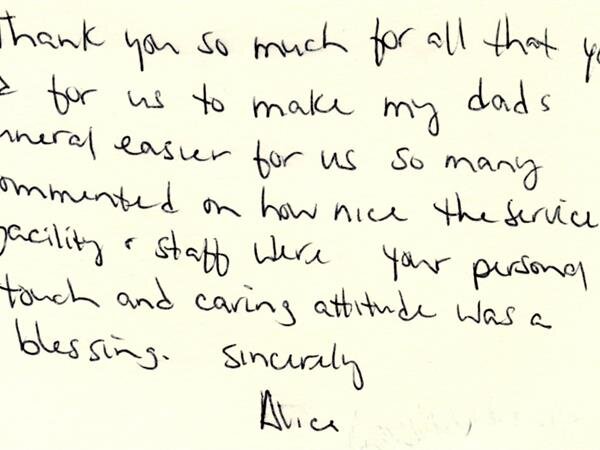 Thank you so much for all that yo
for us to make my dads
uneral easier for us so many
ommented on how nice the service
facility & staff were your personal
touch and caring attitude was a
blessing. Sincerely
Alice